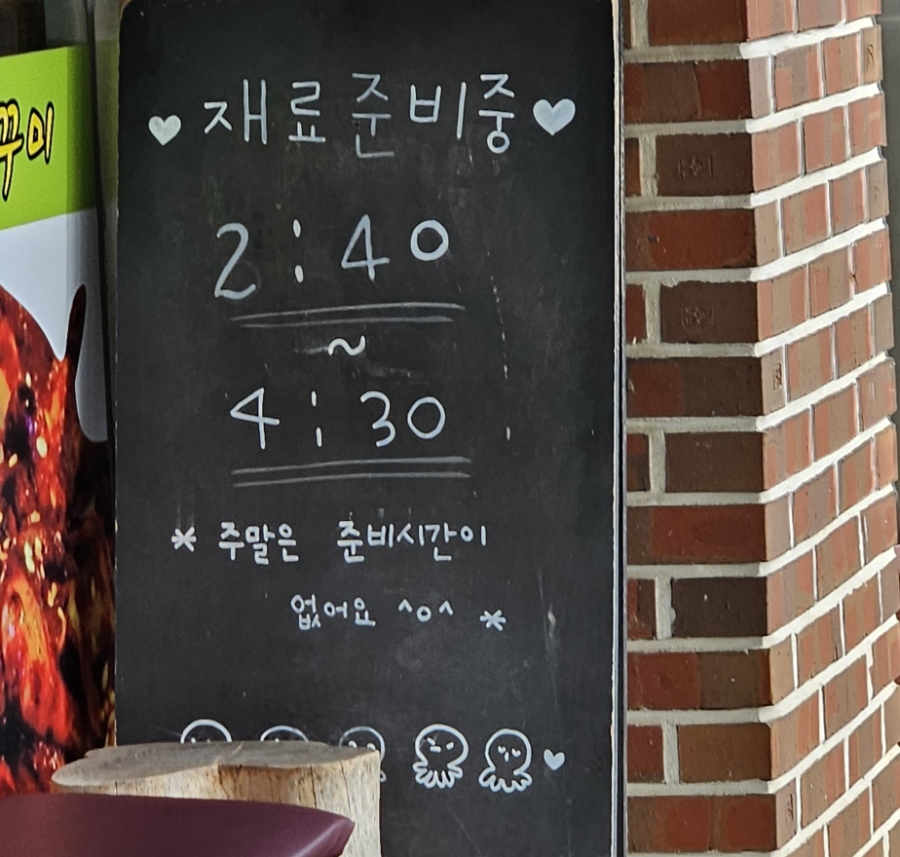 ♥ 재료준비중 ♥
2:40
~
4:30
* 주말은 준비시간이
없어요 ^o^ *
꾸미